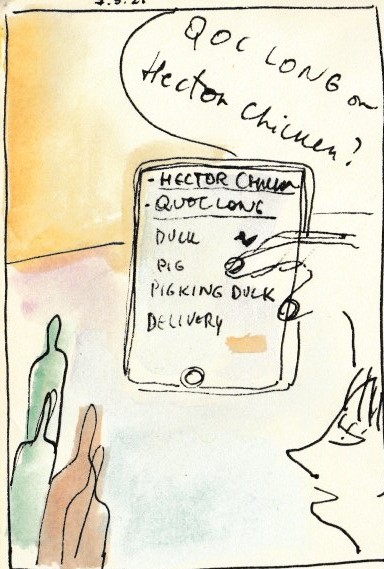 QOC LONG on
Hector Chicken?
- HECTOR Chicken
- QUOC LONG
DUCK
PIG
PIGKING DUCK
DELIVERY